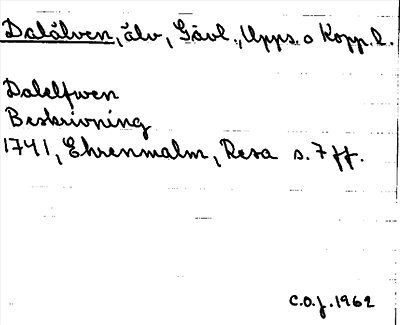 Dalälven, älv, Gävl., Upps. o Kopp. l.
Dalelfwen
Beskrivning
1741, Ehrenmalm, Resa s. 7 ff.
C.O.J. 1962